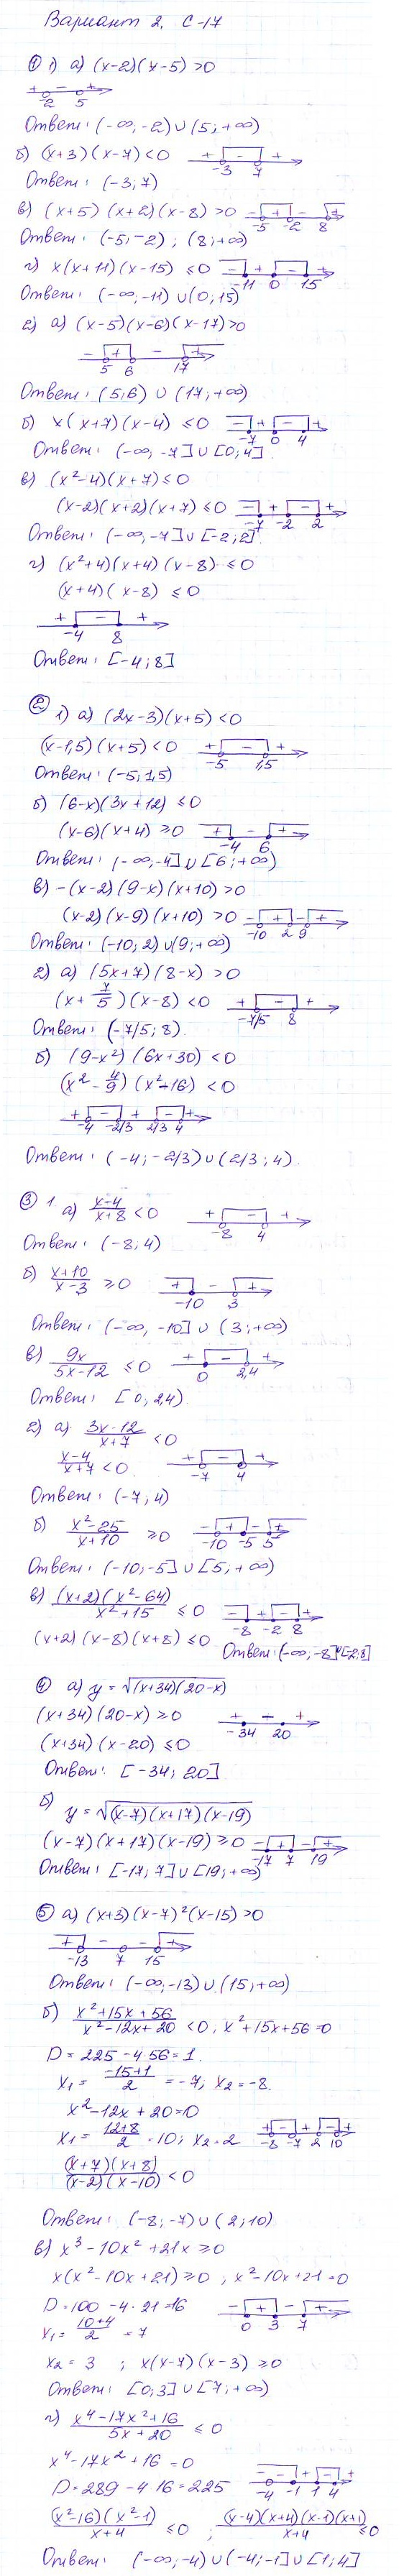 Вариант 2. С-17
① 1) а) (x-2)(x-5) >0
+ - +
-2 5
Ответ: (-∞,-2) ∪ (5; +∞)
б) (x+3)(x-7) <0 + - +
-3 7
Ответ: (-3; 7)
в) (x+5)(x+2)(x-8) >0 - + - +
-5 -2 8
Ответ: (-5;-2) ; (8;+∞)
г) x(x+11)(x-15) ≤0 - + - +
-11 0 15
Ответ: (-∞,-11) ∪(0; 15)
2) а) (x-5)(x-6)(x-17)>0
- + - +
5 6 17
Ответ: (5;6) ∪ (17; +∞)
б) x(x+7)(x-4) ≤0 - + - +
-7 0 4
Ответ: (-∞, -7] ∪ [0; 4]
в) (x²-4)(x+7) ≤0
(x-2)(x+2)(x+7) ≤0 - + - +
-7 -2 2
Ответ: (-∞;-7] ∪ [-2; 2]
г) (x²+4)(x+4)(x-8) ≤0
(x+4)(x-8) ≤0
+ - +
-4 8
Ответ: [-4; 8]
② 1) а) (2x-3)(x+5) <0
(x-1,5)(x+5) <0 + - +
-5 1,5
Ответ: (-5; 1,5)
б) (6-x)(3x+12) ≤0
(x-6)(x+4) ≥0 + - +
-4 6
Ответ: (-∞,-4] ∪ [6; +∞)
в) -(x-2)(9-x)(x+10) >0
(x-2)(x-9)(x+10) >0 - + - +
-10 2 9
Ответ: (-10; 2) ∪(9; +∞)
2) а) (5x+7)(8-x) >0
(x+7/5)(x-8) <0 + - +
-7/5 8
Ответ: (-7/5; 8).
б) (9-x²)(6x+30) <0
(x²-4/9)(x²-16) <0
+ - + - +
-4 -2/3 2/3 4
Ответ: (-4; -2/3) ∪ (2/3; 4).
③ 1 а) x-4/x+8 <0 + - +
-8 4
Ответ: (-8; 4)
б) x+10/x-3 ≥0 + - +
-10 3
Ответ: (-∞, -10] ∪ (3; +∞)
в) 9x/5x-12 ≤0 + - +
0 2,4
Ответ: [0; 2,4)
2) а) 3x-12/x+7 <0
x-4/x+7 <0 + - +
-7 4
Ответ: (-7; 4)
б) x²-25/x+10 ≥0 - + - +
-10 -5 5
Ответ: (-10;-5] ∪ [5; +∞)
в) (x+2)(x²-64)/x²+15 ≤0 - + - +
-8 -2 8
(x+2)(x-8)(x+8) ≤0 Ответ: (-∞; -8] ∪ [-2; 8]
④ а) y = √(x+34)(20-x)
(x+34)(20-x) ≥0 + - +
-34 20
(x+34)(x-20) ≤0
Ответ: [-34; 20]
б) y = √(x-7)(x+17)(x-19)
(x-7)(x+17)(x-19) ≥0 - + - +
-17 7 19
Ответ: [-17; 7] ∪ [19; +∞)
⑤ а) (x+3)(x-7)²(x-15) >0
+ - - +
-13 7 15
Ответ: (-∞;-13) ∪ (15; +∞)
б) x²+15x+56/x²-12x+20 <0, x²+15x+56=0
D = 225-4·56=1.
x₁ = -15+1/2 = -7; x₂=-8.
x²-12x+20=0
x₁ = 12+8/2 = 10; x₂=2 + - + - +
-8 -7 2 10
(x+7)(x+8)/(x-2)(x-10) <0
Ответ: (-8; -7) ∪ (2; 10)
в) x³-10x²+21x ≥0
x(x²-10x+21) ≥0 ; x²-10x+21=0
D=100-4·21=16 - + - +
0 3 7
x₁= 10+4/2 = 7
x₂ = 3 ; x(x-7)(x-3) ≥0
Ответ: [0; 3] ∪ [7; +∞)
г) x⁴-17x²+16/5x+20 ≤0
x⁴-17x²+16=0
D=289-4·16=225 - - + - +
-4 -1 1 4
(x²-16)(x²-1)/x+4 ≤0 ; (x-4)(x+4)(x-1)(x+1)/x+4 ≤0
Ответ: (-∞;-4) ∪ (-4; -1] ∪ [1; 4]